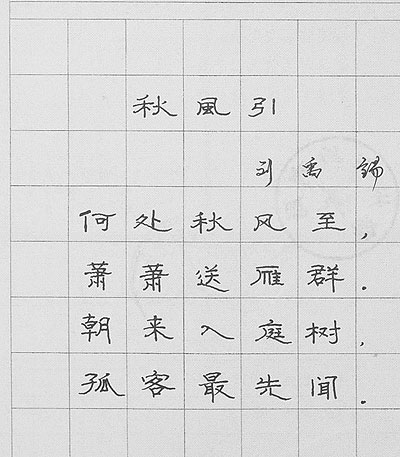 秋風引
刘禹锡
何处秋风至，
萧萧送雁群．
朝来入庭树，
孤客最先闻．